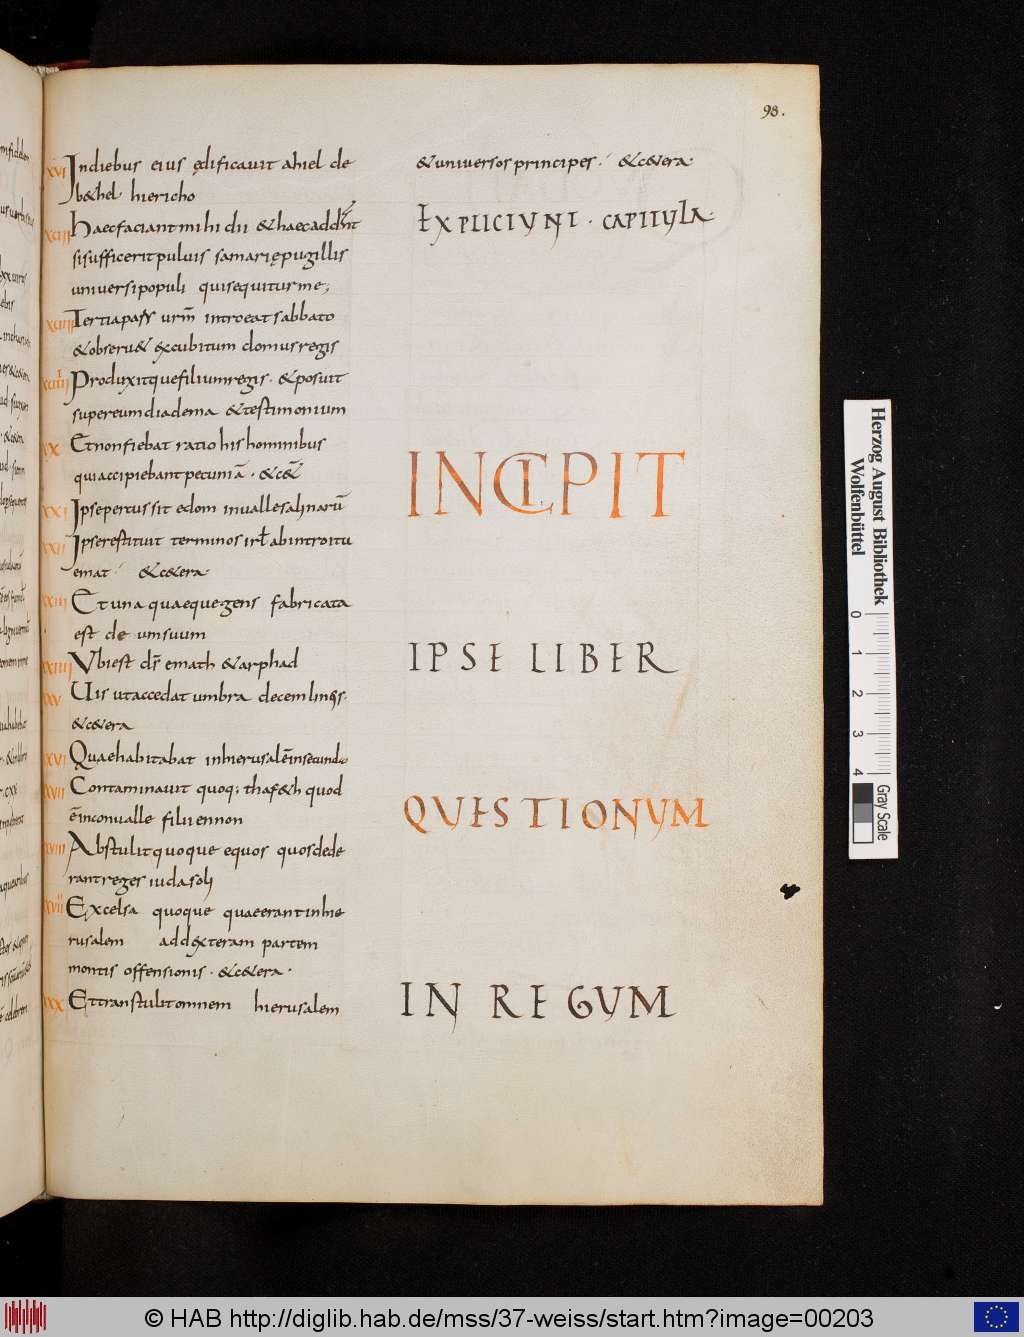 98.
XVI Indiebus eius ędificauit ahiel de
b&hel hiericho
XVII Haec faciant mihi dii & haec addant
si sufficerit puluis samarię pugillis
uniuersi populi qui sequitur me;
XVIII Tertia pars urm̄ introeat sabbato
& obseru& excubitum domus regis
XVIIII Produxitque filium regis · & posuit
super eum diadema & testimonium
XX Et non fiebat ratio his hominibus
qui accipiebant pecuniā · & c&
XXI Ipse percussit edom in ualle salinarū
XXII Ipse restituit terminos isrł ab introitu
emat · & c&era·
XXIII Et una quaeque gens fabricata
est de um suum
XXIIII Ubi est ds̄ emath & arphad
XXV Uis ut accedat umbra decem lineis·
& c&era
XXVI Quae habitabat in hierusalē in secunda
XXVII Contaminauit quoq; thaf&h quod
ē in conualle filii ennon
XXVIII Abstulit quoque equos quos dede
rant reges iuda soli
Excelsa quoque quae erant in hie
rusalem ad dexteram partem
montis offensionis · & c&era·
XXX Et transtulit omnem hierusalem
& uniuersos principes · & c&era·
EXPLICIUNT · CAPITULA·
INCIPIT
IPSE LIBER
QUESTIONUM
IN REGUM
Herzog August Bibliothek
Wolfenbüttel
0 1 2 3 4
Gray Scale
© HAB http://diglib.hab.de/mss/37-weiss/start.htm?image=00203